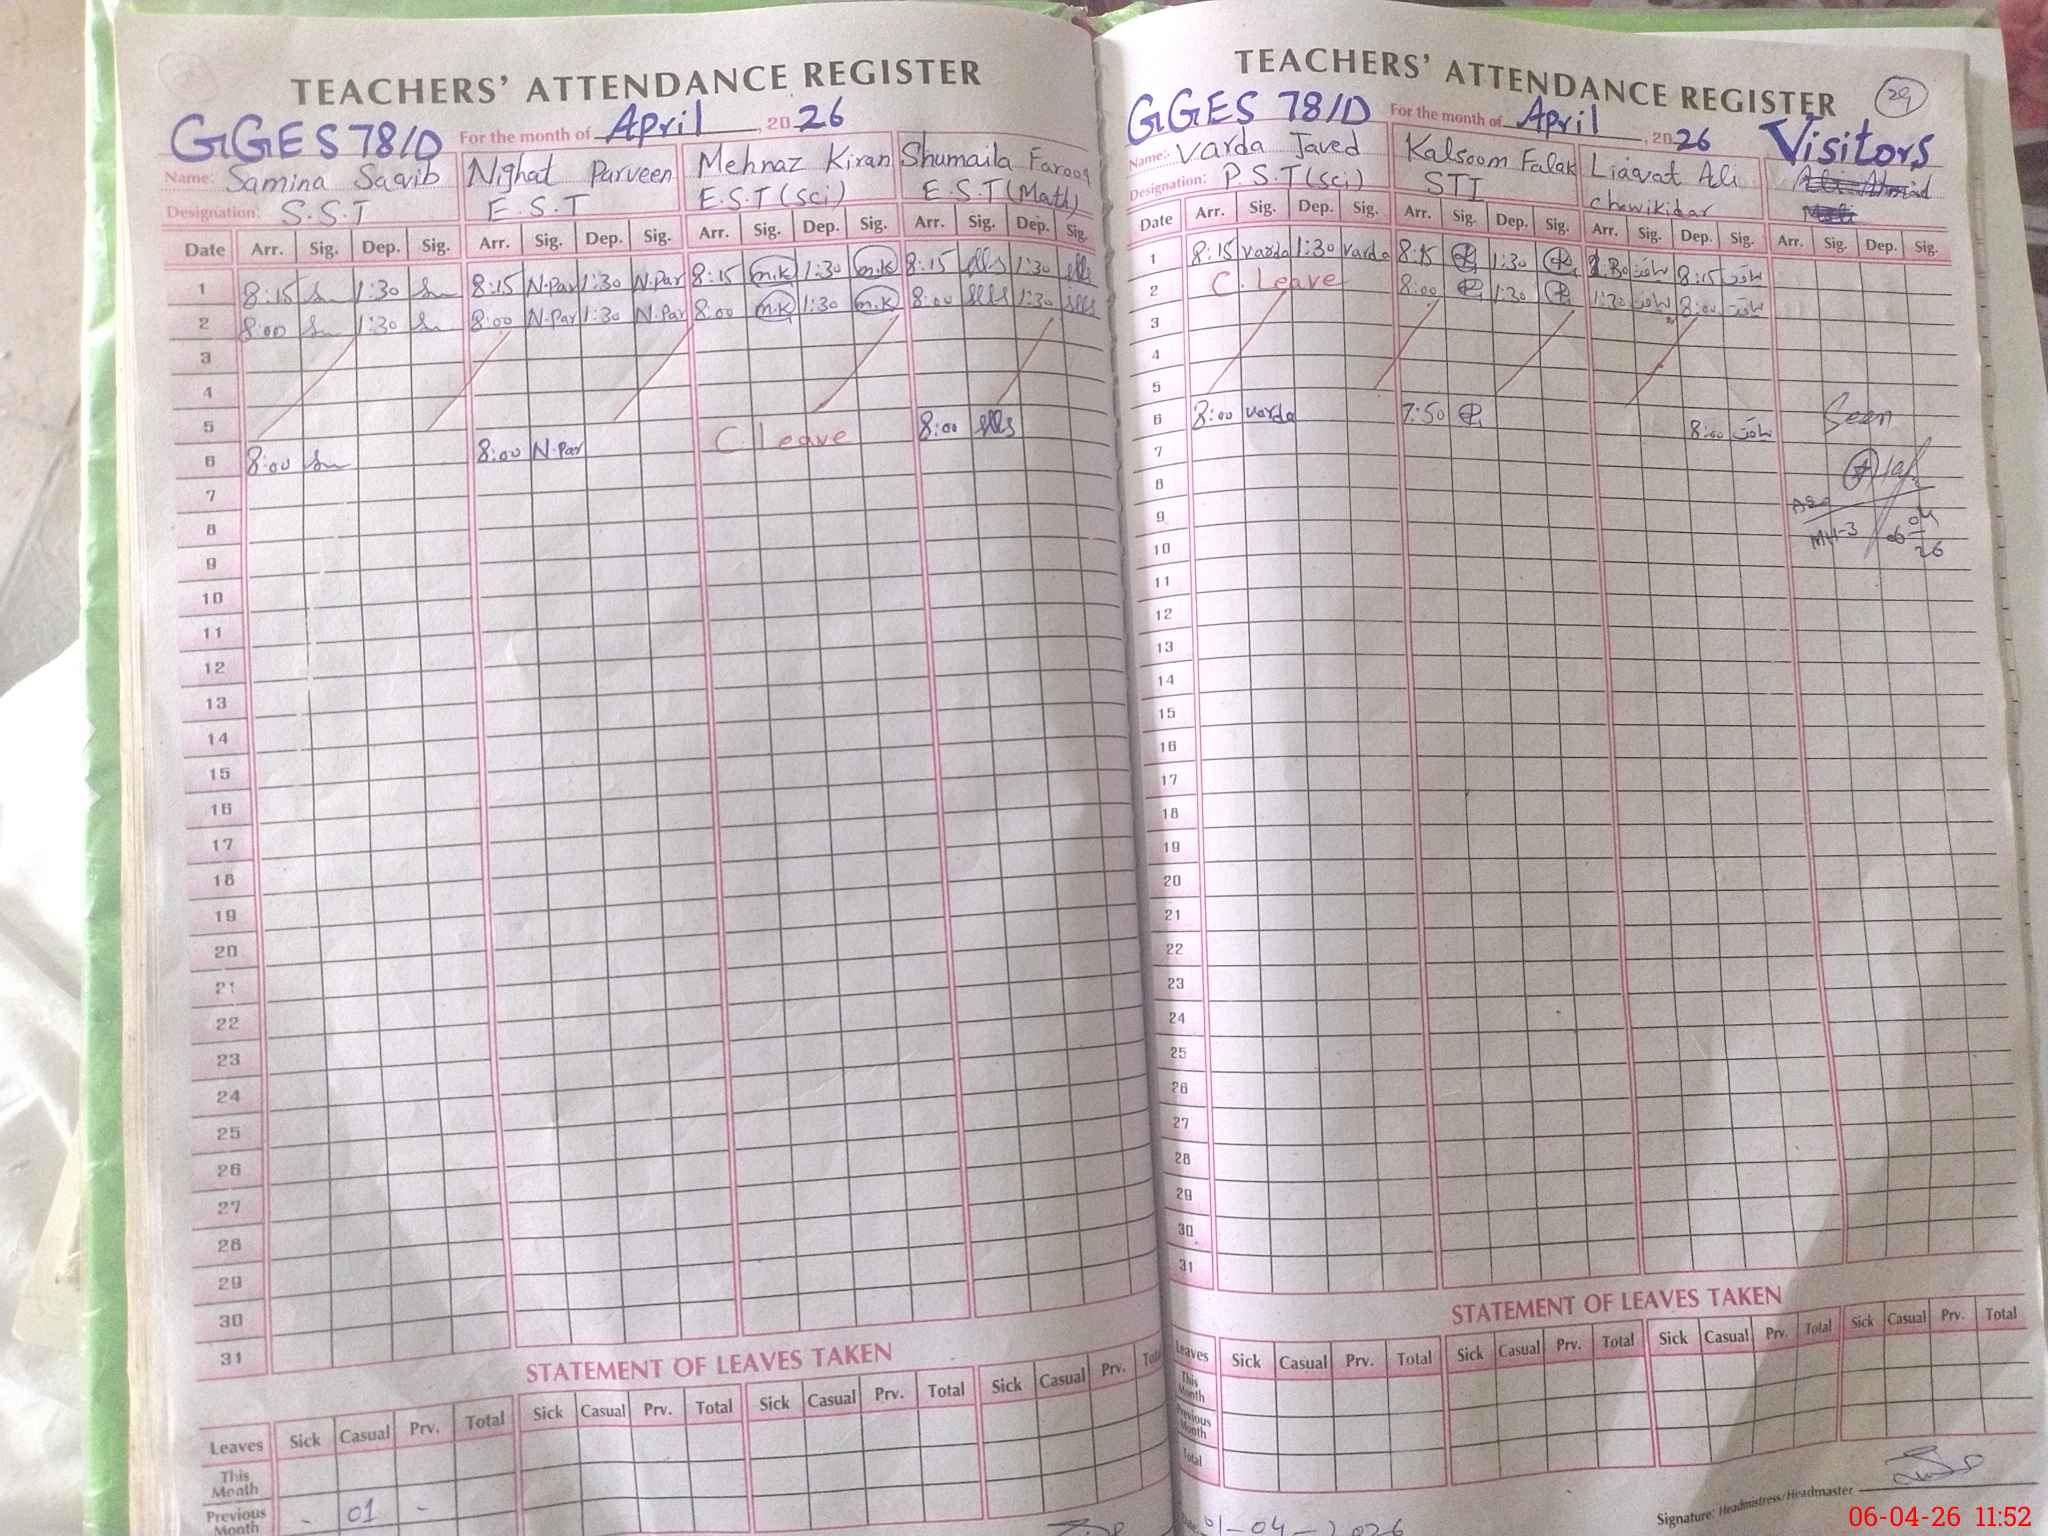 TEACHERS' ATTENDANCE REGISTER
GGES 78/D For the month of April, 2026
Name: Samina Saqib Nighat Parveen Mehnaz Kiran Shumaila Farooq
Designation: S.S.T E.S.T E.S.T (Sci) E.S.T (Math)
Date Arr. Sig. Dep. Sig. Arr. Sig. Dep. Sig. Arr. Sig. Dep. Sig. Arr. Sig. Dep. Sig.
1 8:15 1:30 8:15 N.Par 1:30 N.Par 8:15 m.k 1:30 m.k 8:15 1:30
2 8:00 1:30 8:00 N.Par 1:30 N.Par 8:00 m.k 1:30 m.k 8:00 1:30
3
4
5
6 8:00 8:00 N.Par C. Leave 8:00
7
8
9
10
11
12
13
14
15
16
17
18
19
20
21
22
23
24
25
26
27
28
29
30
31
STATEMENT OF LEAVES TAKEN
Leaves Sick Casual Prv. Total Sick Casual Prv. Total Sick Casual Prv. Total Sick Casual Prv.
This Month
Previous Month - 01 -
TEACHERS' ATTENDANCE REGISTER 29
GGES 78/D For the month of April, 2026 Visitors
Name:- Varda Javed Kalsoom Falak Liaqat Ali
Designation: P.S.T (Sci) STI Chowikidar
Date Arr. Sig. Dep. Sig. Arr. Sig. Dep. Sig. Arr. Sig. Dep. Sig. Arr. Sig. Dep. Sig.
1 8:15 varda 1:30 varda 8:15 1:30 1:30 8:15
2 C. Leave 8:00 1:30 1:30 8:00
3
4
5
6 8:00 varda 7:50 8:00 Seen
7
8
9
10 MH-3 06-04-26
11
12
13
14
15
16
17
18
19
20
21
22
23
24
25
26
27
28
29
30
31
STATEMENT OF LEAVES TAKEN
Leaves Sick Casual Prv. Total Sick Casual Prv. Total Sick Casual Prv. Total Sick Casual Prv. Total
This Month
Previous Month
Total
Signature: Headmistress/Headmaster
01-04-2026
06-04-26 11:52